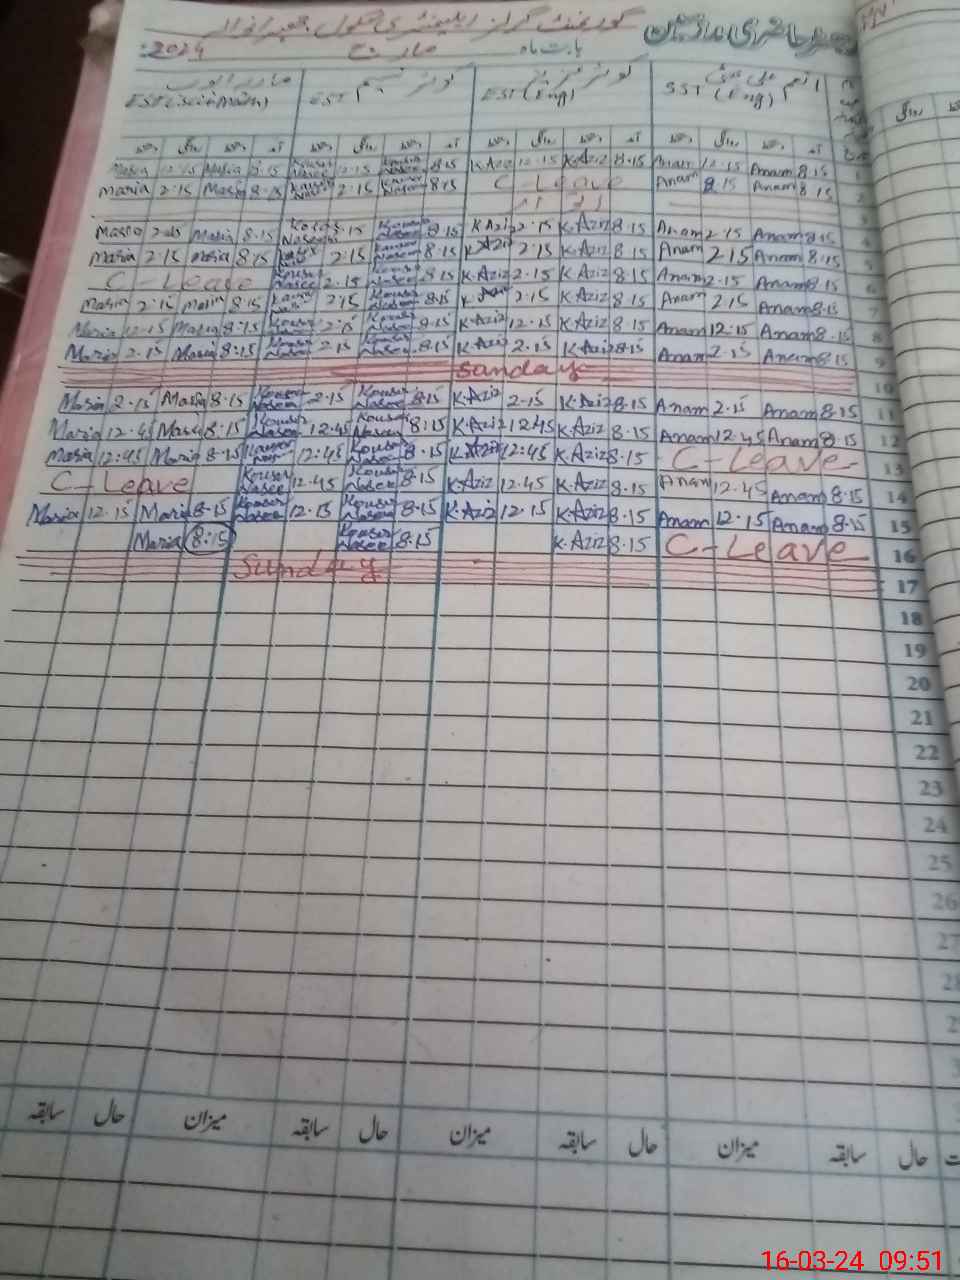 رجسٹر حاضری مدرسین گورنمنٹ گرلز ایلیمنٹری سکول
بابت ماہ مارچ 2024
انعم علی کوثر عزیز کوثر نسیم ماریہ ایوب
SST (Eng) EST (Eng) EST EST (Sci-Math)
آمد دستخط روانگی دستخط آمد دستخط روانگی دستخط آمد دستخط روانگی دستخط آمد دستخط روانگی دستخط
Maria 12.15 Maria 8.15 Kousar Naseem 12.15 Kousar Naseem 8.15 K.Aziz 12.15 K.Aziz 8.15 Anam 12.15 Anam 8.15 1
Maria 2.15 Maria 8.15 Kousar Naseem 2.15 Kousar Naseem 8.15 C-Leave Anam 8.15 Anam 8.15 2
3
Maria 2.15 Maria 8.15 Kousar Naseem 2.15 Kousar Naseem 8.15 K.Aziz 2.15 K.Aziz 8.15 Anam 2.15 Anam 8.15 4
Maria 2.15 Maria 8.15 Kousar Naseem 2.15 Kousar Naseem 8.15 K.Aziz 2.15 K.Aziz 8.15 Anam 2.15 Anam 8.15 5
C-Leave Kousar Naseem 2.15 Kousar Naseem 8.15 K.Aziz 2.15 K.Aziz 8.15 Anam 2.15 Anam 8.15 6
Maria 2.15 Maria 8.15 Kousar Naseem 2.15 Kousar Naseem 8.15 K.Aziz 2.15 K.Aziz 8.15 Anam 2.15 Anam 8.15 7
Maria 12.15 Maria 8.15 Kousar Naseem 2.15 Kousar Naseem 8.15 K.Aziz 12.15 K.Aziz 8.15 Anam 12.15 Anam 8.15 8
Maria 2.15 Maria 8:15 Kousar Naseem 2.15 Kousar Naseem 8.15 K.Aziz 2.15 K.Aziz 8.15 Anam 2.15 Anam 8.15 9
Sanday 10
Maria 2.15 Maria 8.15 Kousar Naseem 2.15 Kousar Naseem 8.15 K.Aziz 2.15 K.Aziz 8.15 Anam 2.15 Anam 8.15 11
Maria 12.45 Maria 8.15 Kousar Naseem 12.45 Kousar Naseem 8:15 K.Aziz 12.45 K.Aziz 8.15 Anam 12.45 Anam 8.15 12
Maria 12:45 Maria 8.15 Kousar Naseem 12:45 Kousar Naseem 8.15 K.Aziz 12:45 K.Aziz 8.15 C-Leave 13
C-Leave Kousar Naseem 12.45 Kousar Naseem 8.15 K.Aziz 12.45 K.Aziz 8.15 Anam 12.45 Anam 8.15 14
Maria 12.15 Maria 8.15 Kousar Naseem 12.15 Kousar Naseem 8.15 K.Aziz 12.15 K.Aziz 8.15 Anam 12.15 Anam 8.15 15
Maria 8:15 Kousar Naseem 8.15 K.Aziz 8.15 C-Leave 16
Sunday 17
18
19
20
21
22
23
24
25
26
27
28
حال سابقہ میزان حال سابقہ میزان حال سابقہ میزان حال سابقہ
16-03-24 09:51